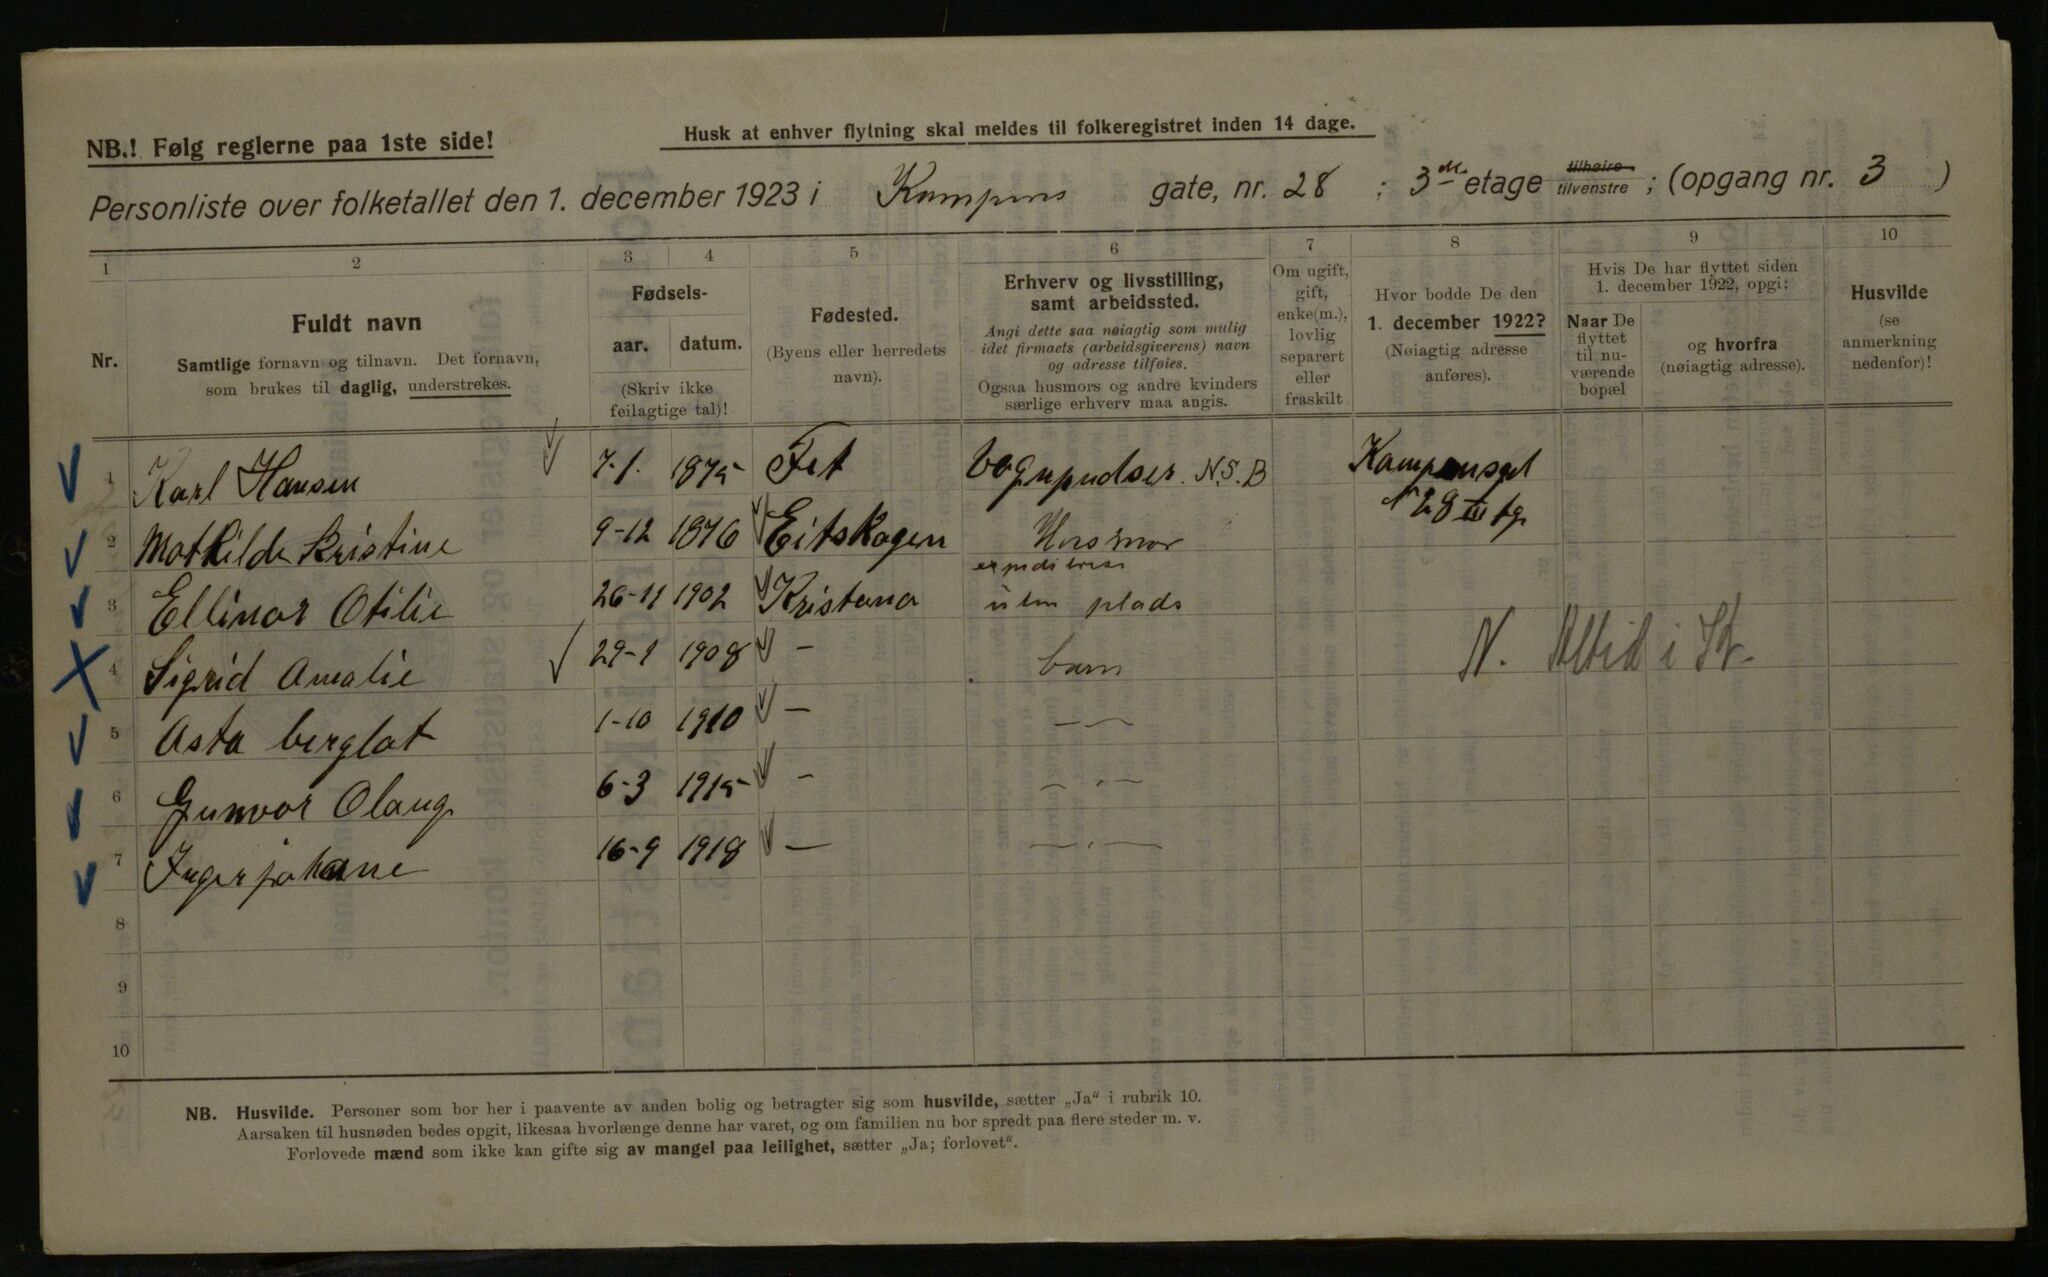 NB.! Følg reglerne paa 1ste side!
Husk at enhver flytning skal meldes til folkeregistret inden 14 dage.
Personliste over folketallet den 1. december 1923 i Kampens gate, nr. 28 ; 3 etage tilhøire tilvenstre ; (opgang nr. 3 )
1 2 3 4 5 6 7 8 9 10
Nr.
Fuldt navn
Samtlige fornavn og tilnavn. Det fornavn,
som brukes til daglig, understrekes.
Fødsels-
aar. datum.
(Skriv ikke
feilagtige tal)!
Fødested.
(Byens eller herredets
navn).
Erhverv og livsstilling,
samt arbeidssted.
Angi dette saa nøiagtig som mulig
idet firmaets (arbeidsgiverens) navn
og adresse tilføies.
Ogsaa husmors og andre kvinders
særlige erhverv maa angis.
Om ugift,
gift,
enke(m.),
lovlig
separert
eller
fraskilt
Hvor bodde De den
1. december 1922?
(Nøiagtig adresse
anføres).
Hvis De har flyttet siden
1. december 1922, opgi:
Naar De
flyttet
til nu-
værende
bopæl
og hvorfra
(nøiagtig adresse).
Husvilde
(se
anmerkning
nedenfor)!
1 Karl Hansen 7-1. 1875 Fet Vognpudser N.S.B Kampensgt
28 III tg
2 Mathilde Kristine 9-12 1876 Eitskogen Husmor
3 Ellinor Otilie 26-11 1902 Kristana uten plads
4 Sigrid Amalie 29-1 1908 — barn N. Altid i Kr.
5 Asta berglot 1-10 1910 — —"—
6 Gunvor Olaug 6-3 1915 — —"—
7 Inger johane 16-9 1918 — —"—
8
9
10
NB. Husvilde. Personer som bor her i paavente av anden bolig og betragter sig som husvilde, sætter „Ja" i rubrik 10.
Aarsaken til husnøden bedes opgit, likesaa hvorlænge denne har varet, og om familien nu bor spredt paa flere steder m. v.
Forlovede mænd som ikke kan gifte sig av mangel paa leilighet, sætter „Ja; forlovet".